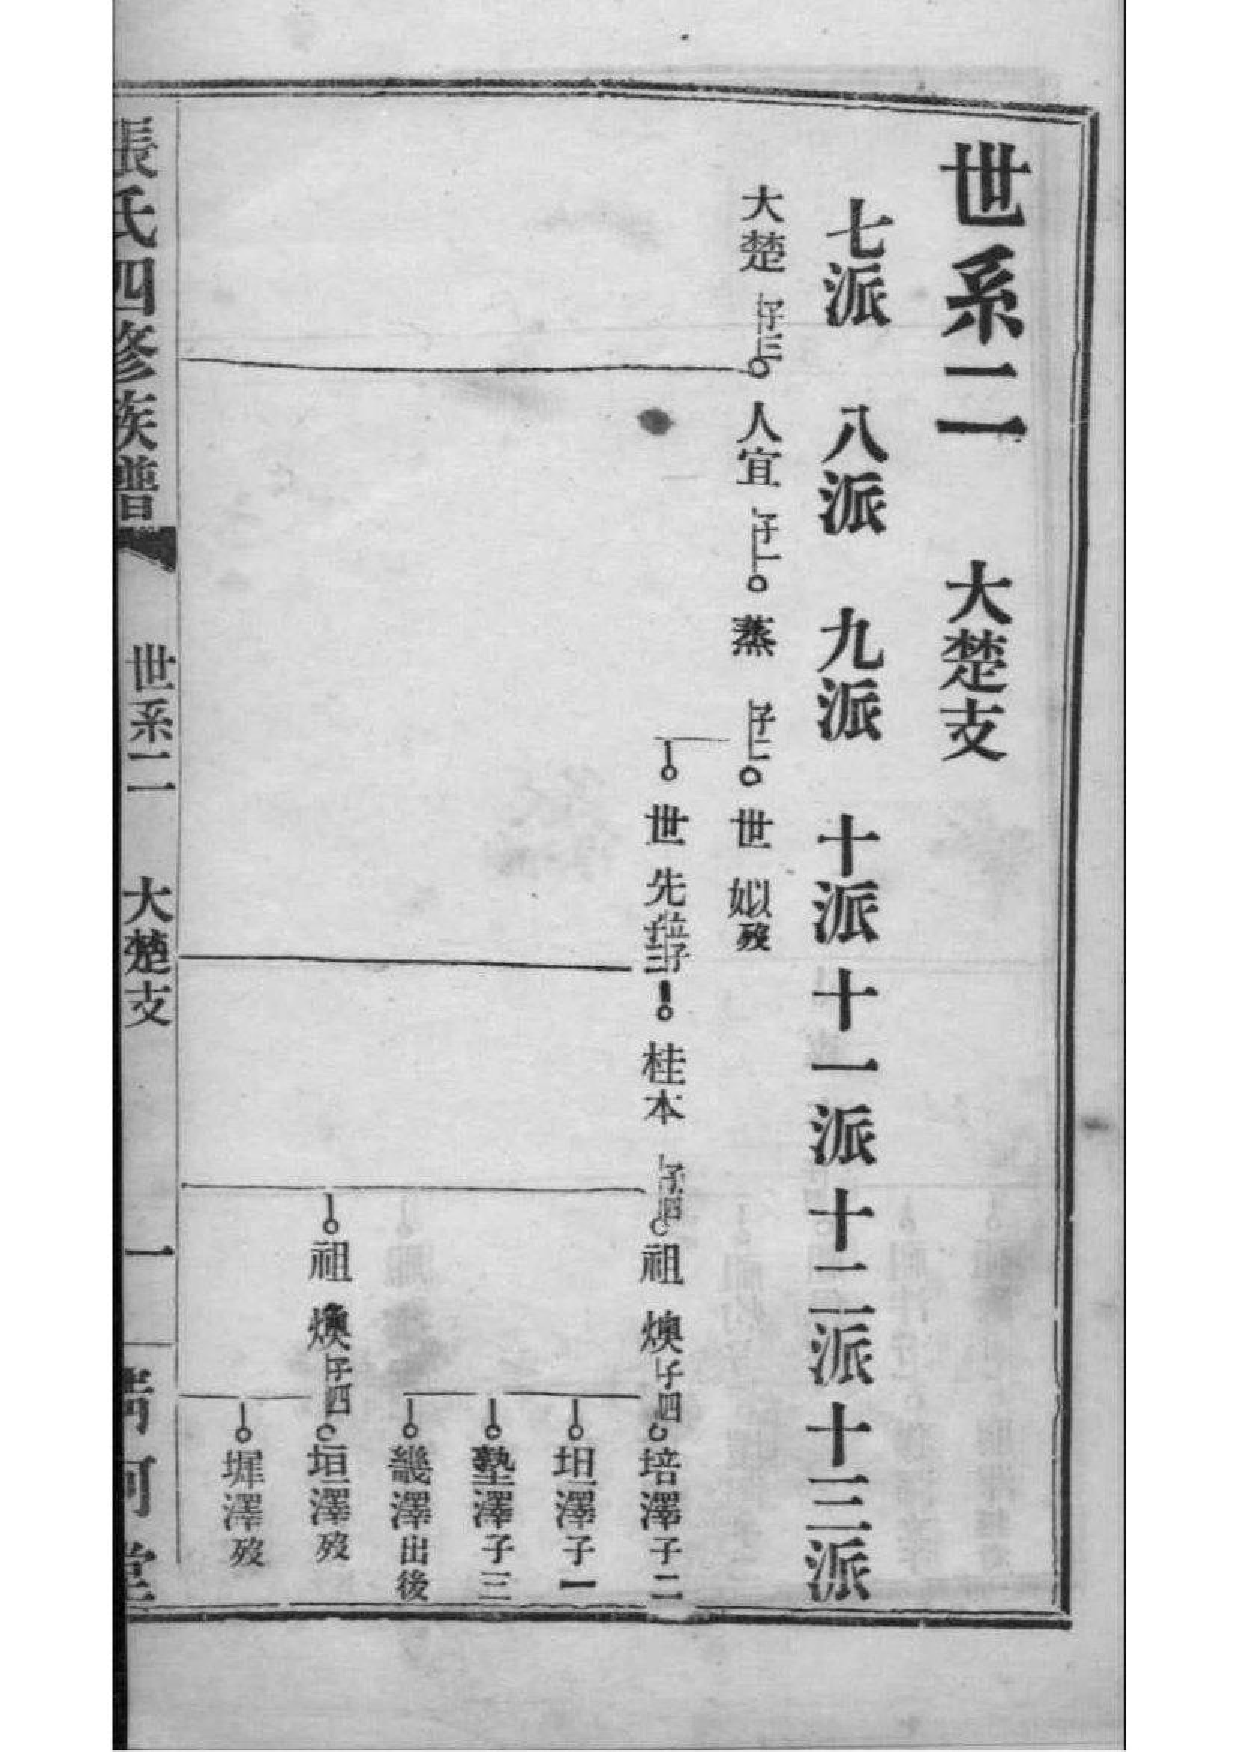 世系二　大楚支
七派　八派　九派　十派　十一派　十二派　十三派
大楚　子三　人宜　子一　蒸　子二　世姒　歿
世先　子三　桂本　子四　祖燠　子四　培澤　子二
坦澤　子一
塾澤　子三
畿澤　出後
祖煥　子四　垣澤　歿
墀澤　歿
張氏四修族譜　世系二　大楚支　一　堂